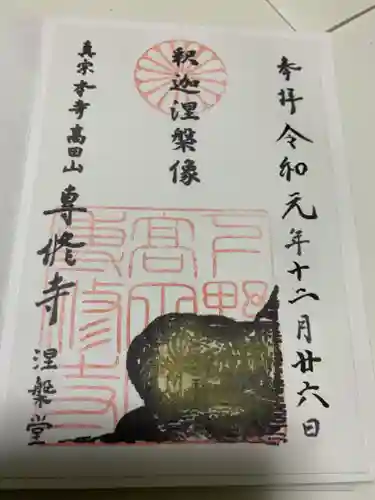 参拝 令和元年十二月廿六日
釈迦涅槃像
真宗本寺 高田山
専修寺
涅槃堂